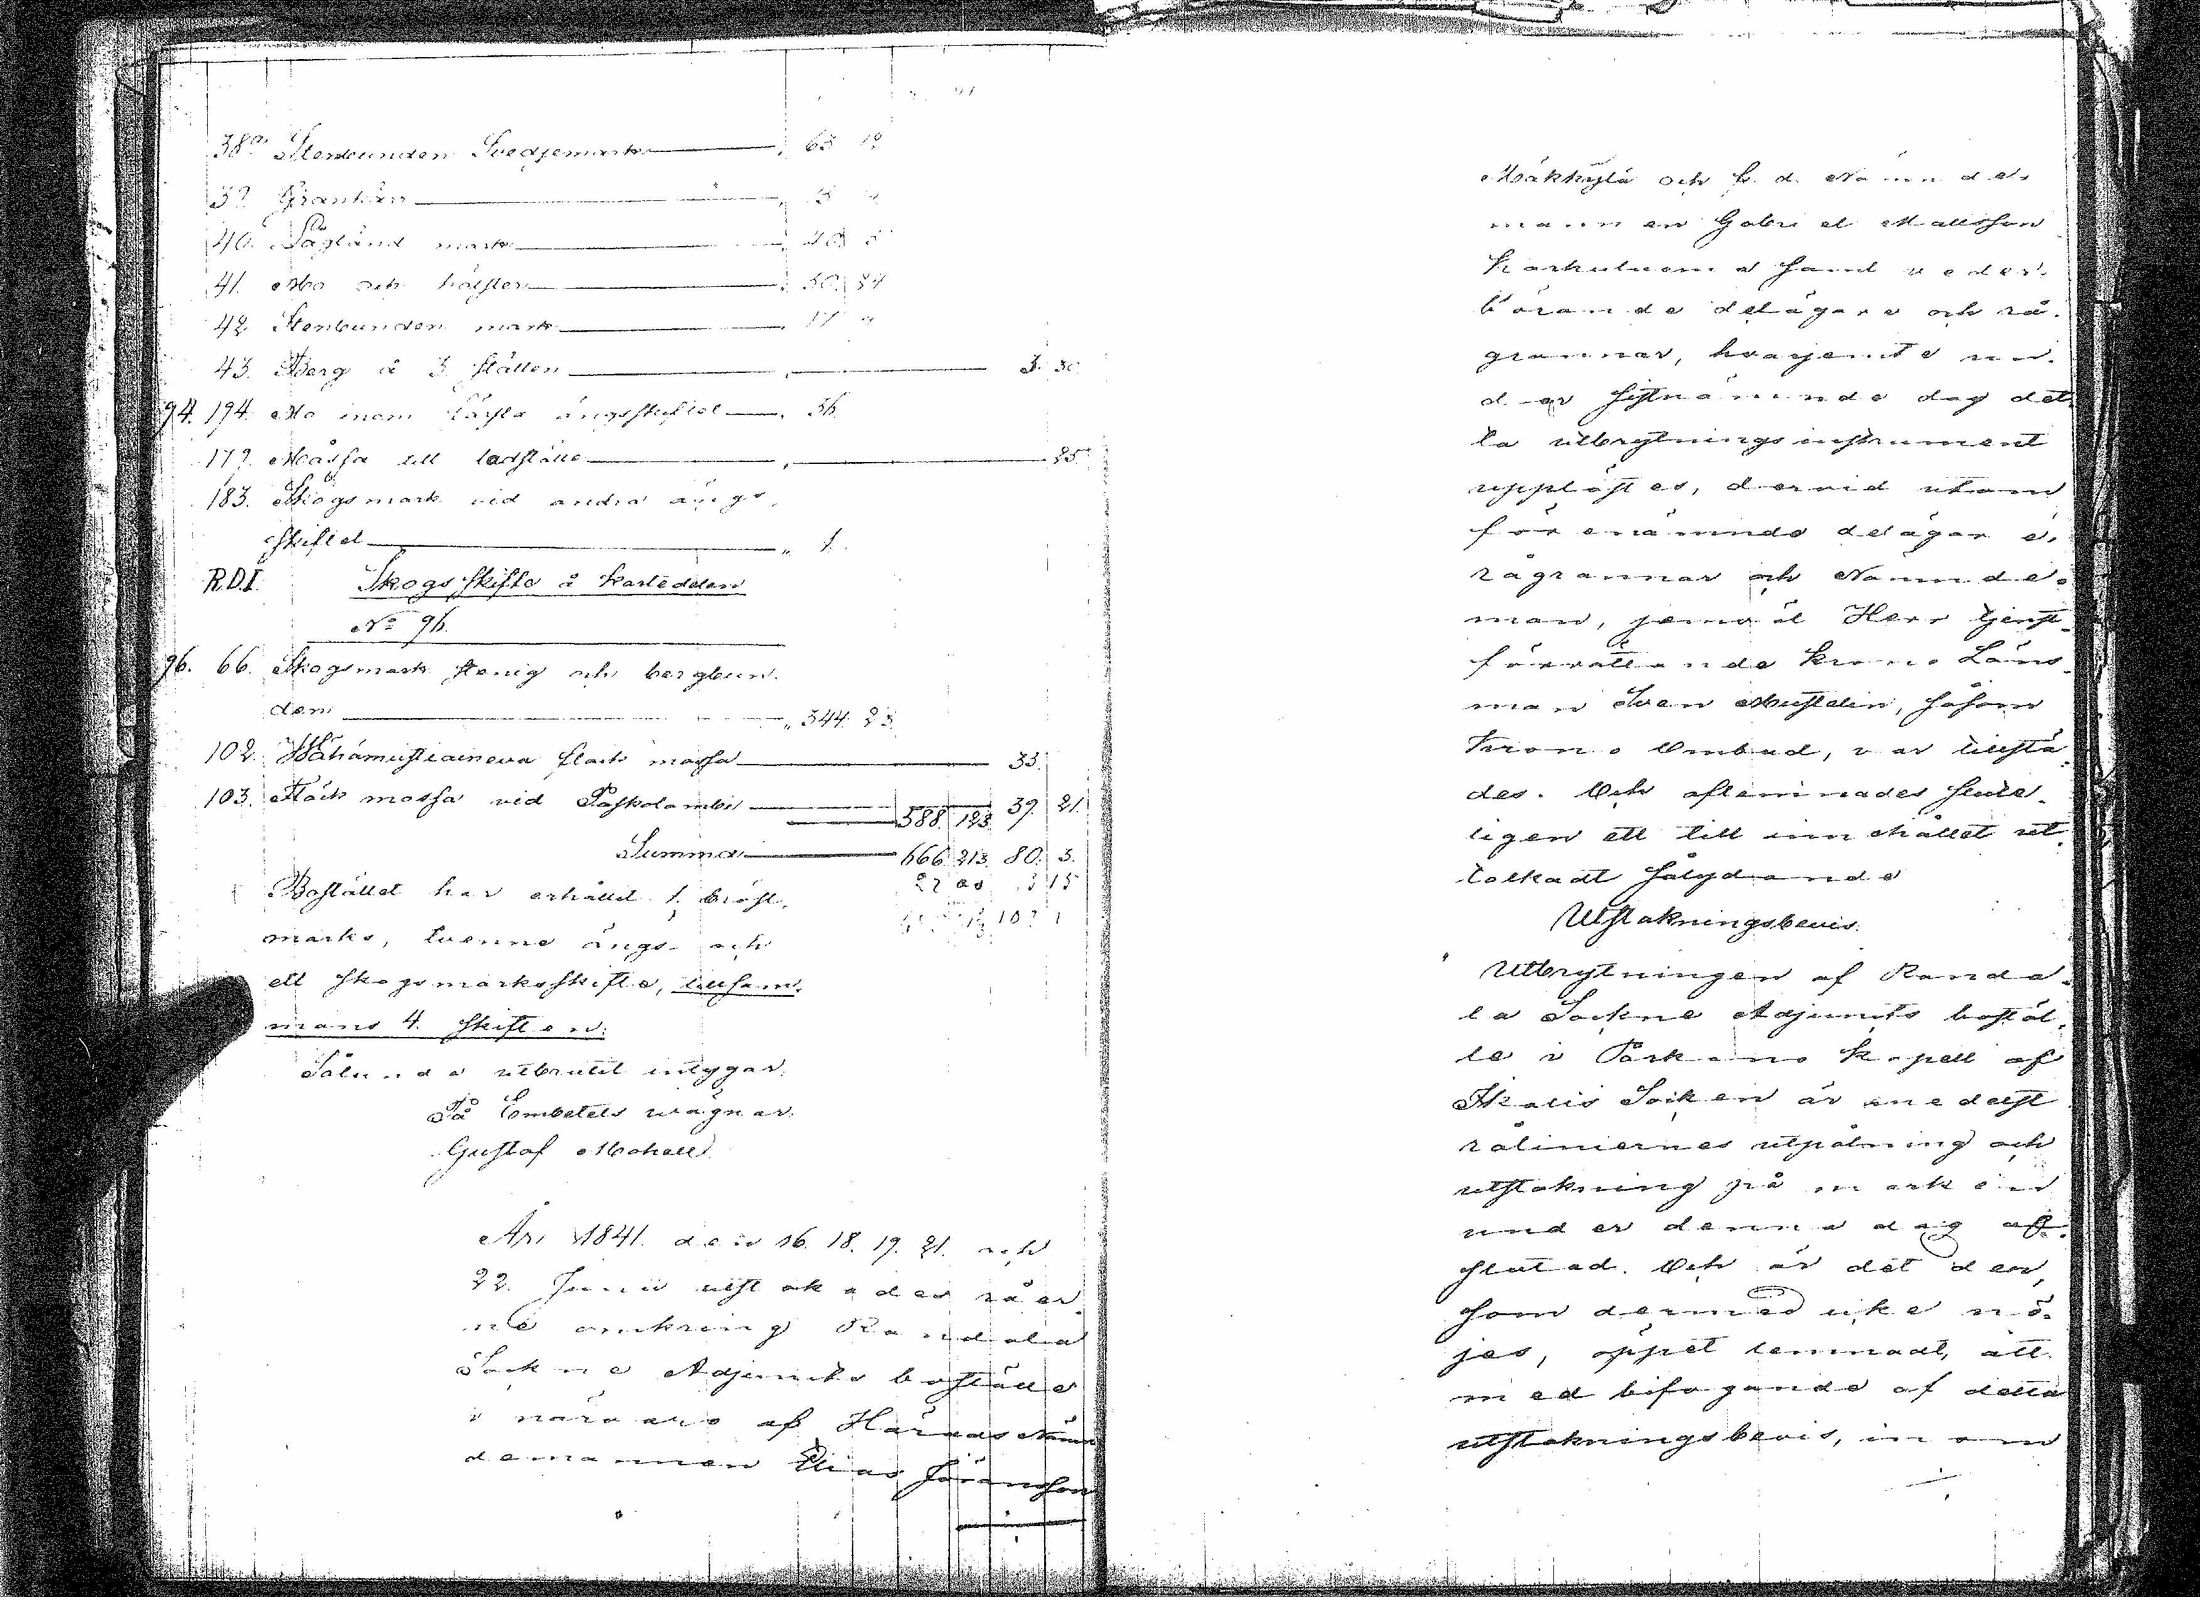 38a Stenbunden Svedjemark 63
39. Grankärr
40. Lågländ mark
41. Mo och hölster 50. 84
42. Stenbunden mark 17
43. Berg å 3 ställen 3. 30
94. 194. Mo inom första ängsskiftet 36.
179. Måssa till ladställe 25
183. Skogsmark vid andra ängs
skiftet 1.
R.D.I. Skogsskifte å Kartedelen
No 96.
96. 66. Skogsmark stenig och bergbun-
den 344. 23
102. Vähämustiaineva slack mossa 33.
103. Flack mossa vid Paskolambi 39. 21.
588. 123.
Summa 666. 213. 80. 3.
Bostället har erhållit 1 bröst-
marks, tvenne ängs- och
ett skogsmarksskifte, tillsam-
mans 4. skiften.
Sålunda utbrutit intygar.
På Embetets wägnar.
Gustaf Mohell
År 1841. den 16. 18. 19. 21. och
22. Junii utstakades råer-
ne omkring Randala
Sockne Adjunkts boställe
i närvaro af Härads Näm-
demannen Elias Göransson
Mäkkylä och f. d. Nämnde-
mannen Gabriel Mattsson
Karhuluoma samt veder-
börande delägare och rå-
grannar, hvarjemte un-
der sistnämnde dag det-
ta utbrytningsinstrument
upplästes, dervid utom
förenämnde delägare,
rågrannar och Nämnde-
man, jemväl Herr tjenst-
förrättande Krono Läns-
man Sven Mustelin, såsom
Krono Ombud, var tillstä-
des. Och aflemnades slute-
ligen ett till innehållet ut-
tolkadt sålydande
Utstakningsbevis.
Utbrytningen af Randa-
la Sockne Adjunkts bostäl-
le i Parkano Kapell af
Ikalis Socken är medelst
råliniernes utpålning och
utstakning på marken
under denna dag af-
slutad. Och är det den,
som dermed icke nö-
jes, öppet lemnadt, att
med bifogande af detta
utstakningsbevis, inom